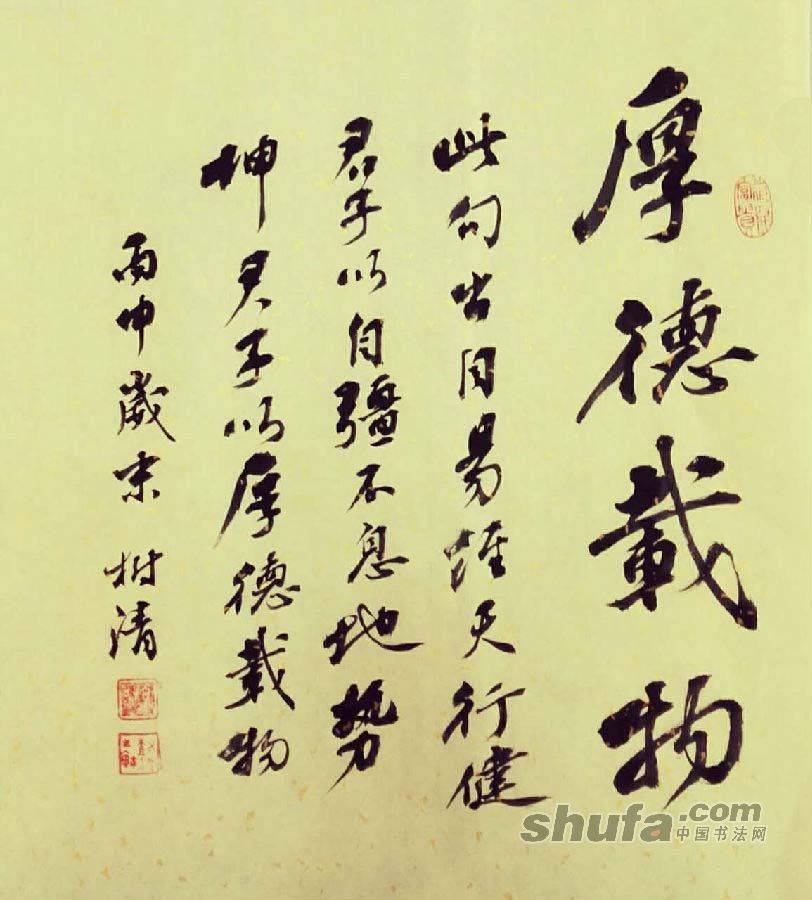 厚德載物
此句出自易經天行健
君子以自彊不息地勢
坤君子以厚德載物
丙申歲末 樹清
shufa.com
中国书法网